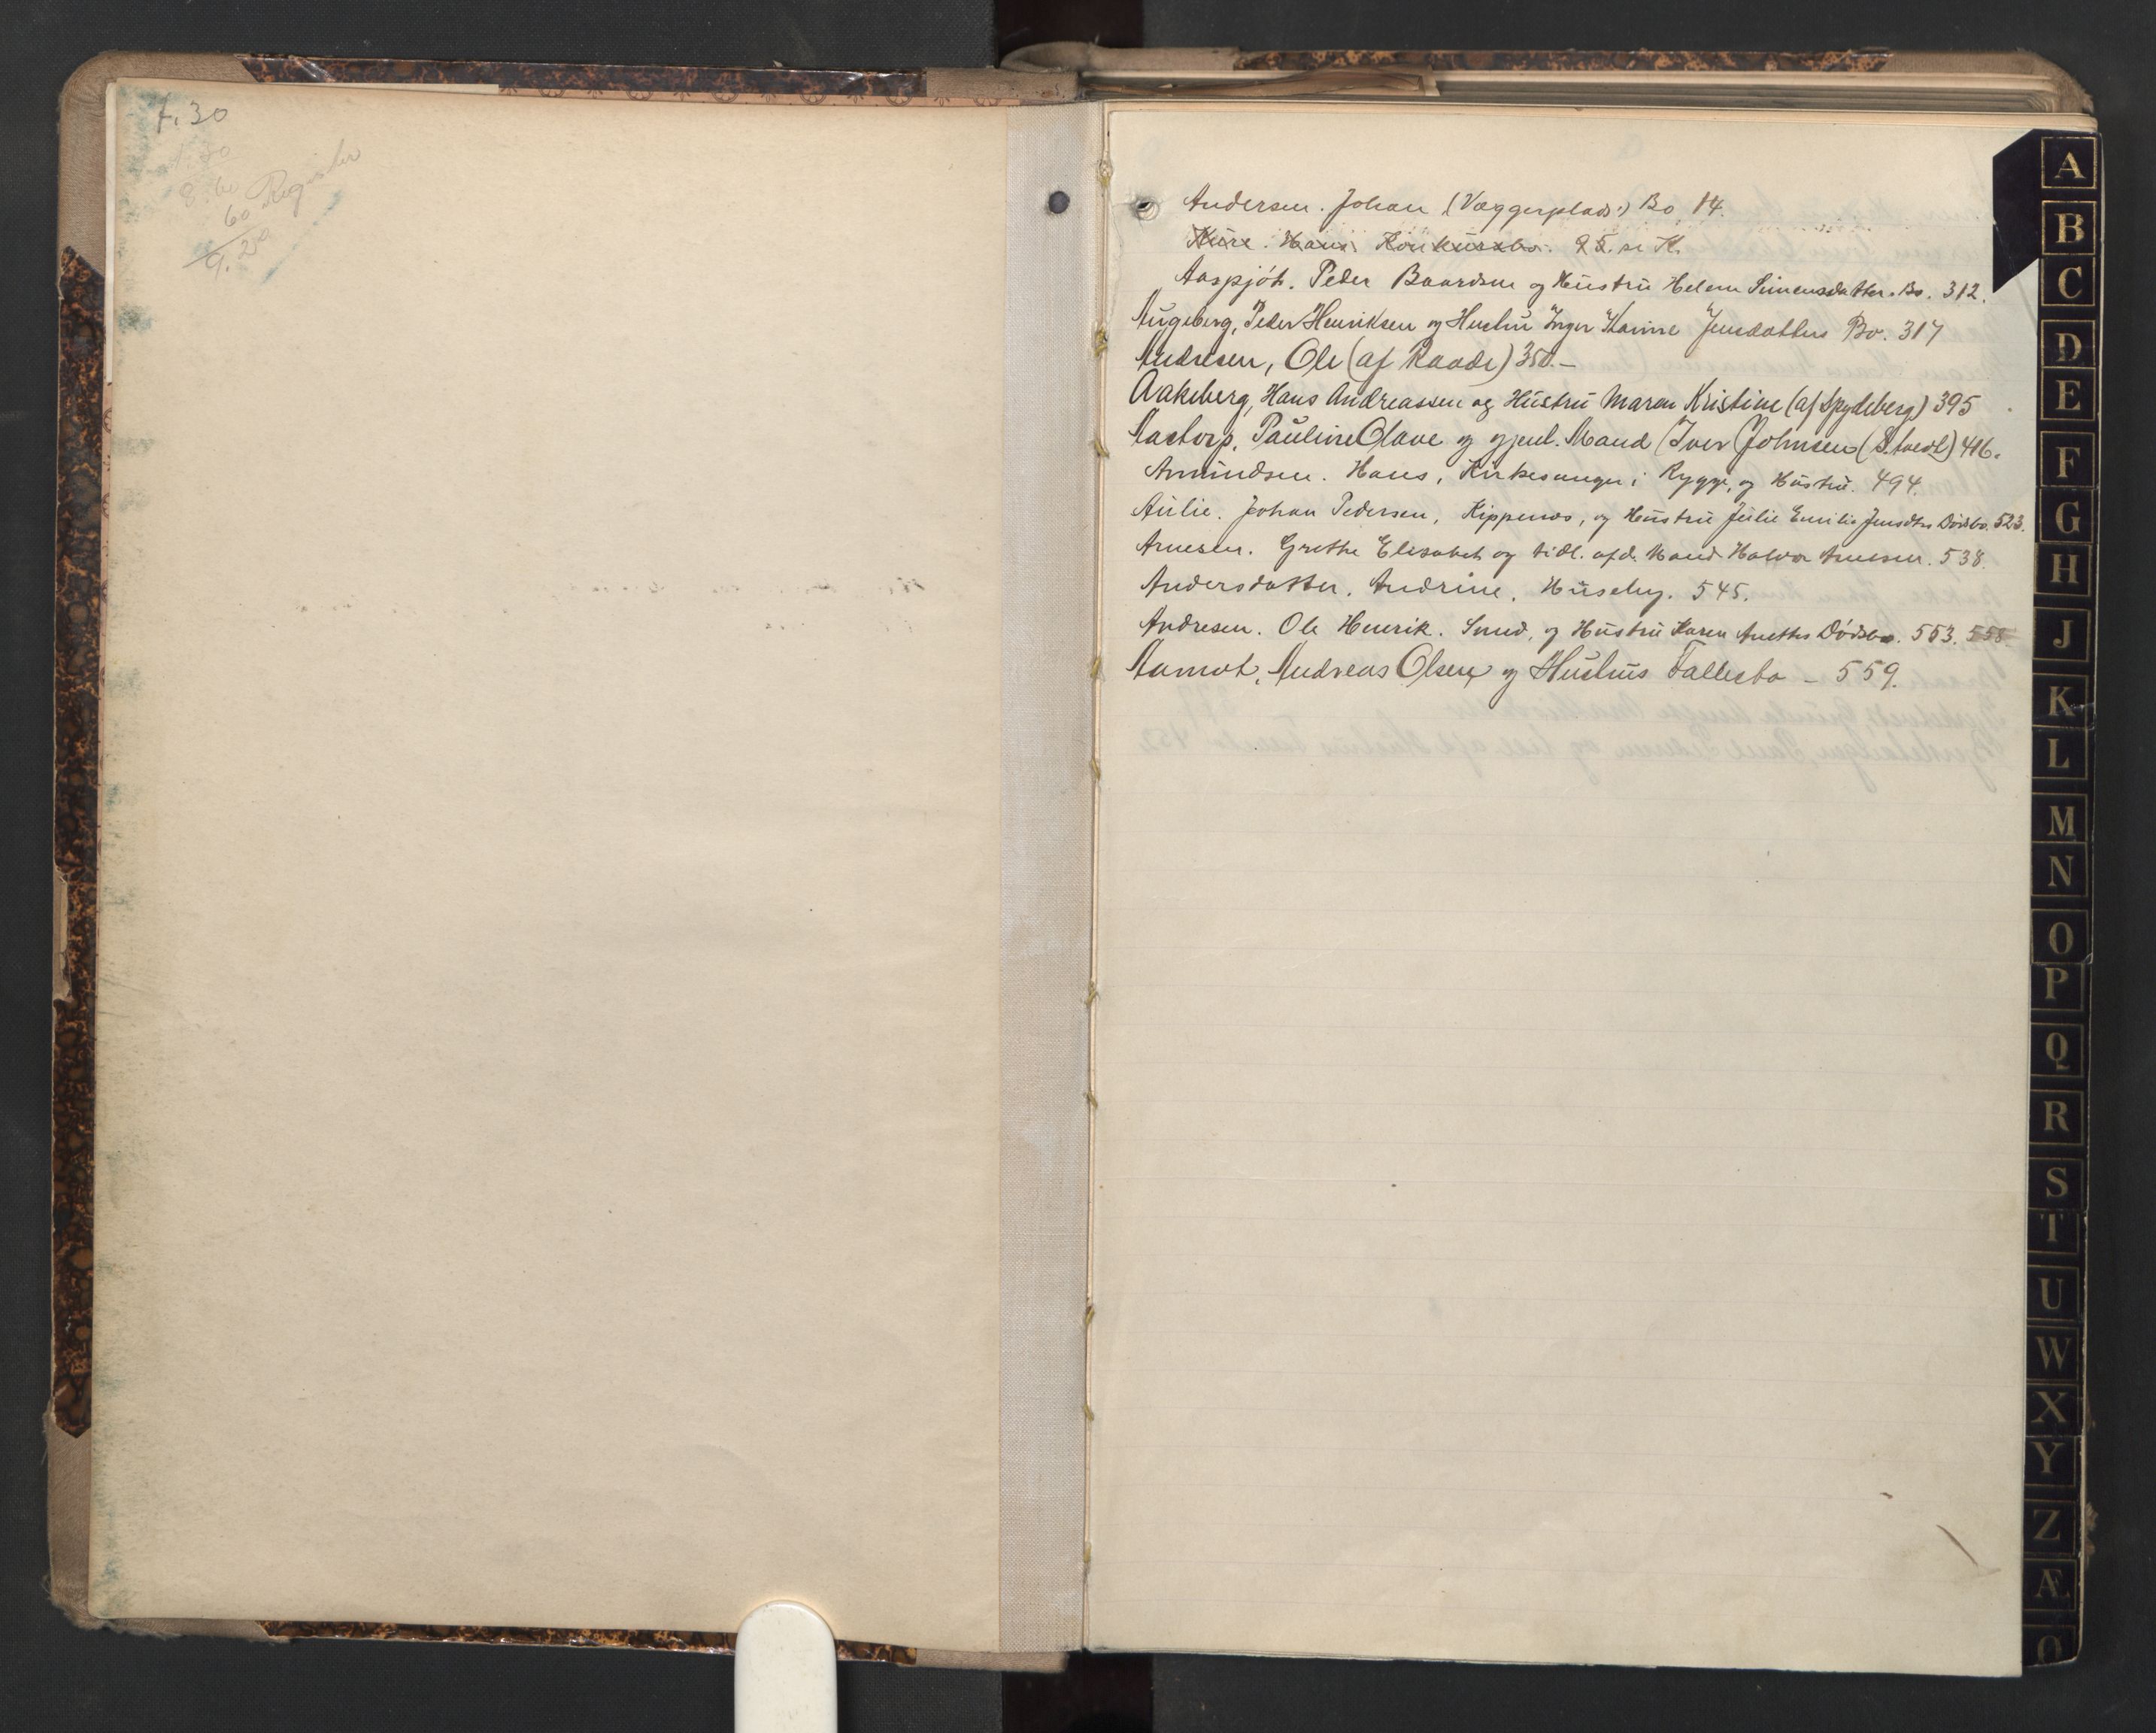 7.30
8.60
60 Register
9.20
Andersen. Johan (Væggerplads:) Bo. 14.
Kure. Hans. Konkursbo. 25. se K.
Aaspjót. Peder Baardsen og Hustru Helene Simensdatter. Bo. 312.
Augeberg, Peder Henriksen og Hustru Inger Karine Jensdatters Bo. 317
Andresen, Ole (af Raade) 350.—
Aakeberg, Hans Andreassen og Hüstrü Maren Kristine (af Spydeberg) 395
Aastorp, Pauline Olave og gjenl. Mand Iver Johnsen 416.
Amundsen. Hans, Kirkesanger i Rygge, og Hüstrü. 494.
Aulie. Johan Pedersen, Kippenæs, og Hüstrü Julie Emilie Jensdtrs Dødsbo. 523.
Arnesen. Grethe Elisabet og tidl. afd. Mand Halvor Arnesen. 538.
Andersdatter. Andrine. Hüseby. 545.
Andresen. Ole Henrik. Smed, og Hüstrü Karen Anethes Dødsbo. 553. 558
Aamot, Andreas Olsen og Hustrus Fællesbo — 559.
A
B
C
D
E
F
G
H
J
K
L
M
N
O
P
Q
R
S
T
U
W
X
Y
Z
Æ
Ø